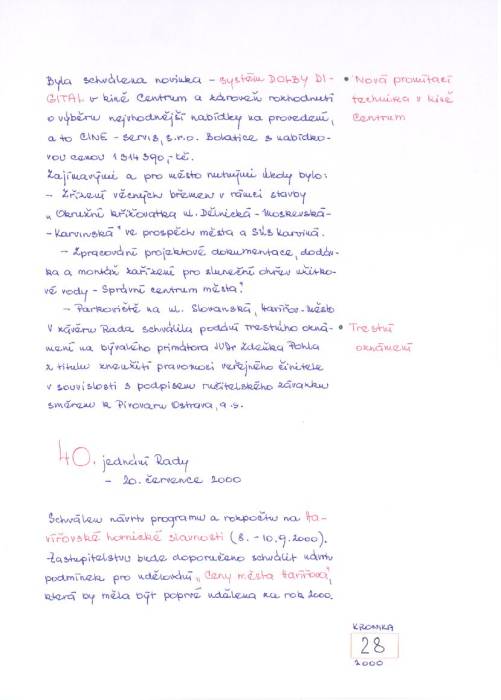 Byla schválena novinka - systém DOLBY DI-
GITAL v kině Centrum a zároveň rozhodnutí
o výběru nejvhodnější nabídky na provedení,
a to CINE - SERVIS, s.r.o. Bolatice s nabídko-
vou cenou 1 314 390,- Kč.
Zajímavými a pro město nutnými úkoly bylo:
- Zřízení věcných břemen v rámci stavby
„Okružní křižovatka ul. Dělnická - Moskevská-
-Karvinská" ve prospěch města a SÚS Karviná.
- Zpracování projektové dokumentace, dodáv-
ka a montáž zařízení pro sluneční ohřev užitko-
vé vody - Správní centrum města.
- Parkoviště na ul. Slovanská, Havířov-Město
V závěru Rada schválila podání trestního ozná-
mení na bývalého primátora JUDr Zdeňka Pohla
z titulu zneužití pravomoci veřejného činitele
v souvislosti s podpisem ručitelského závazku
směrem k Pivovaru Ostrava, a.s.
• Nová promítací
technika v kině
Centrum
• Trestní
oznámení
40. jednání Rady
- 20. července 2000
Schválen návrh programu a rozpočtu na Ha-
vířovské hornické slavnosti (8. - 10.9.2000).
Zastupitelstvu bude doporučeno schválit návrh
podmínek pro udělování „Ceny města Havířova",
která by měla být poprvé udělena za rok 2000.
KRONIKA
28
2000